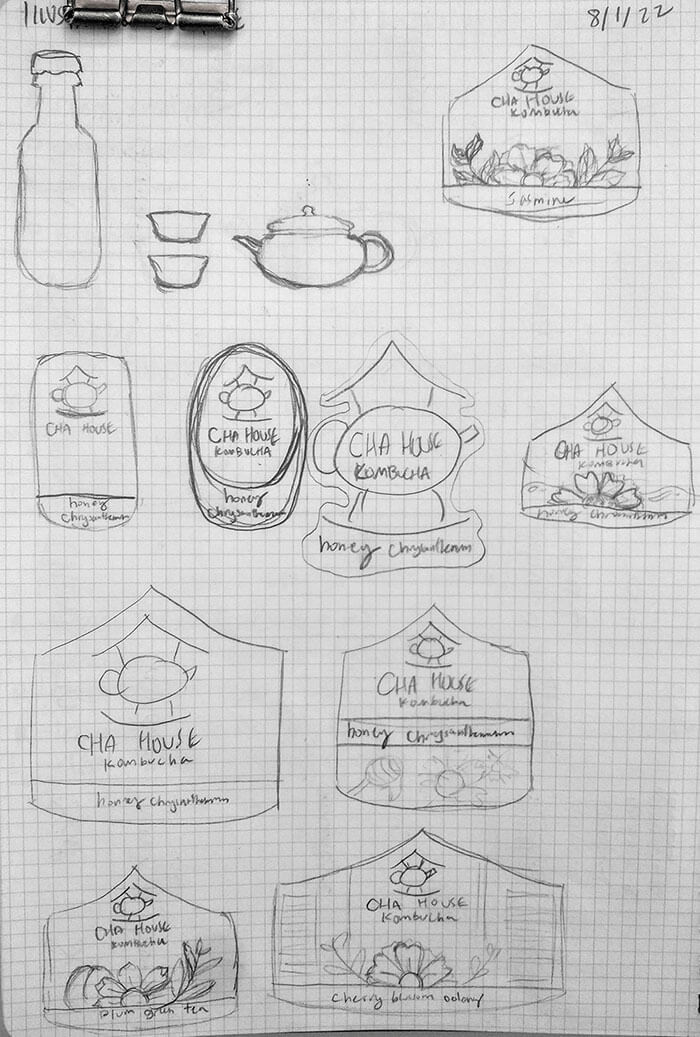 8/1/22
CHA HOUSE
Kombucha
Jasmine
CHA HOUSE
honey
Chrysanthemum
CHA HOUSE
KOMBUCHA
honey
Chrysanthemum
CHA HOUSE
KOMBUCHA
honey Chrysanthemum
CHA HOUSE
Kombucha
honey Chrysanthemum
CHA HOUSE
Kombucha
honey Chrysanthemum
CHA HOUSE
Kombucha
honey Chrysanthemum
CHA HOUSE
Kombucha
Plum green tea
CHA HOUSE
Kombucha
Cherry blossom oolong